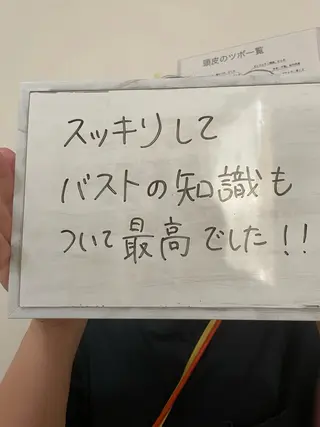 頭皮のツボ一覧
スッキリして
バストの知識も
ついて最高でした!!